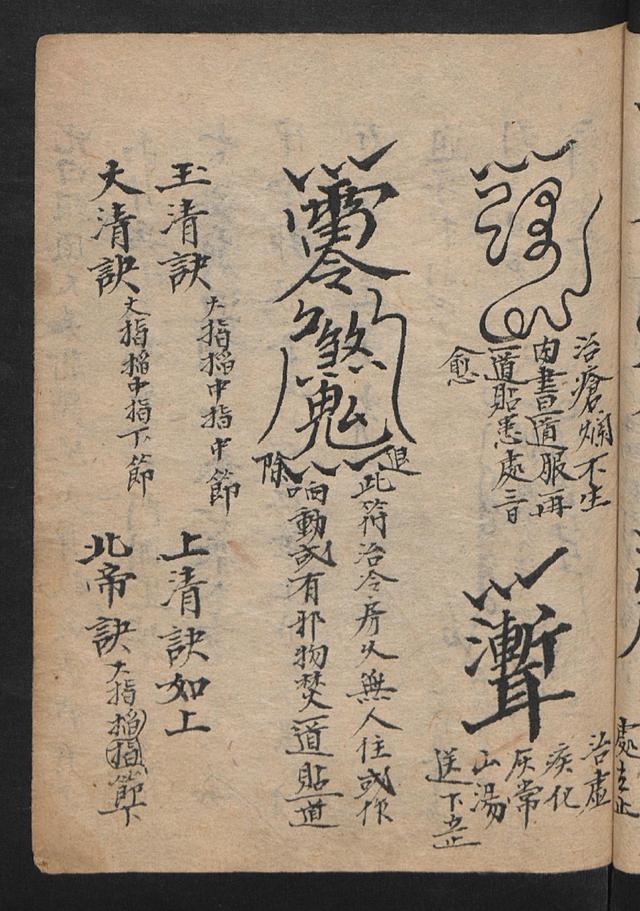 治瘡爛不生
肉書一道服再
一道貼患處二日
愈
治虛
疾化
灰常
山湯
送下止
退
除
此符治冷房久無人住或作
响動或有邪物焚一道貼一道
玉清訣大指搯中指中節
上清訣如上
大清訣大指搯中指下節
北帝訣大指搯指節下